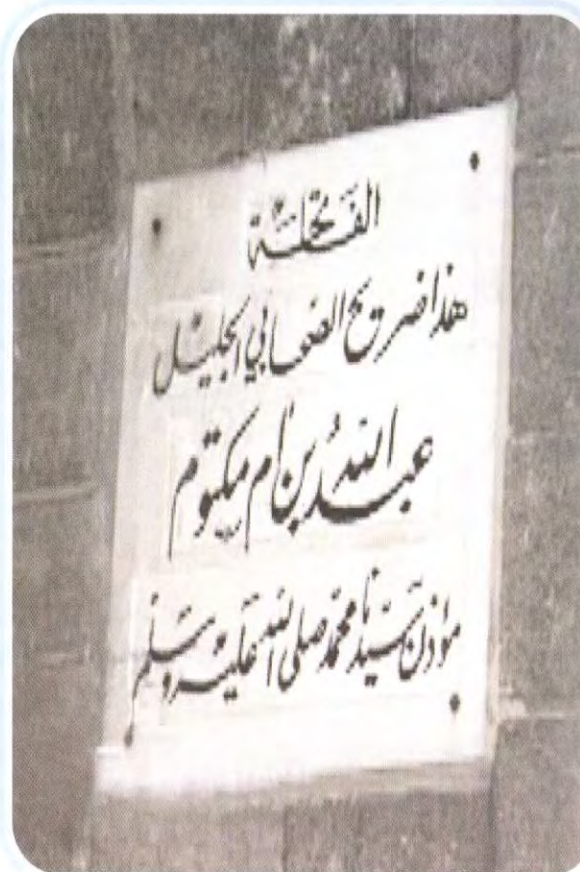 الفاتحة
هذا ضريح الصحابي الجليل
عبد الله بن ام مكتوم
مؤذن سيدنا محمد صلى الله عليه وسلم